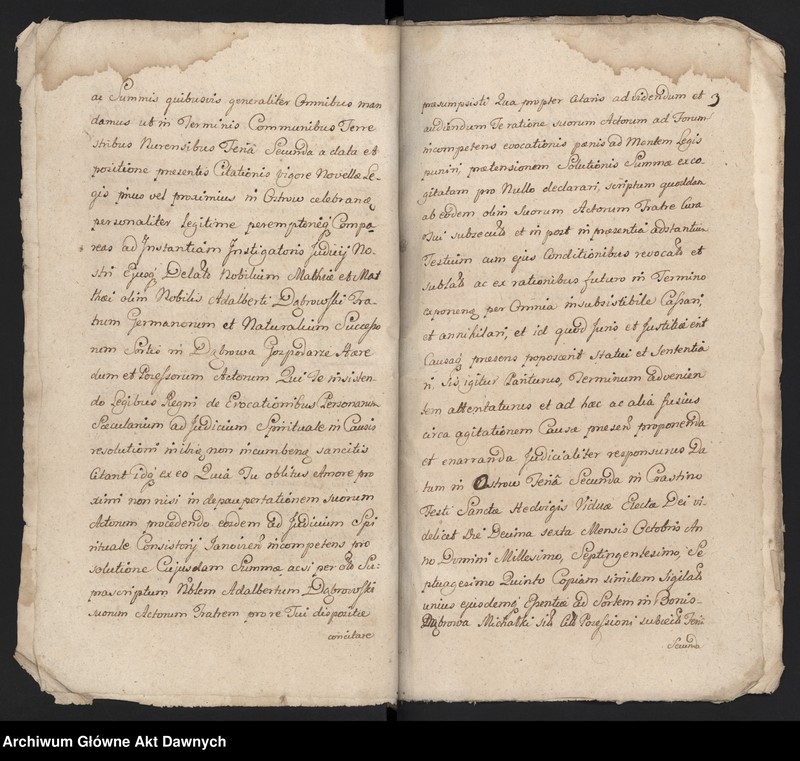 ac Summis quibusvis generaliter Omnibus man
damus ut in Terminis Communibus Terre
stribus Nurensibus Feria Secunda a data et
positione presentis Citationis vigore Novellæ Le-
gis prius vel proximius in Ostrow celebrand
personaliter Legitime peremptorieq Compa
reas ad Instantiam Instigatoris Judicij No-
stri Ejusq Delat Nobilium Mathiæ et Mat
thæi olim Nobilis Adalberti Dąbrowski Fra-
trum Germanorum et Naturalium Successo
rum Sortis in Dąbrowa Gospodarze Hære
dum et Possessorum Actorum Qui Te insisten-
do Legibus Regni de Evocationibus Personarum
Sæcularium ad Judicium Spirituale in Causis
resolutioni non incumben sancitis
Citant ex eo Quia Tu oblitus Amore pro
ximi non nisi in depauportationem suorum
Actorum procedendo eosdem ad Judicium Spi
rituale Consistorij Janovien incompetens pro
solutione Cujusdam Summæ acsi per Su:
prascriptum Adalbertum Dąbrowski
suorum Actorum Fratrem pro re Tui dispositæ
concitare
præsumpsisti Qua propter Citaris ad videndum et 3
audiendum Te ratione suorum Actorum ad Forum
incompetens evocationis pænis ad Mentem Legis
puniri, prætensionem Solutionis Summæ exco
gitatam pro Nullo declarari, scriptum quoddam
ab eodem olim Suorum Actorum Fratre Cura
Tui subsecut et in post in præsentia adstantium
Testium cum ejus Conditionibus revocat et
sublat ac ex rationibus futuro in Termino
exponen, per Omnia insubsistibile Cassari,
et annihilari, et id quod Juris et Justitiæ erit
Causaq præsens poposcerit Statui et Sententia
ri, sis igitur Pariturus, Terminum advenien
tem attentaturus et ad hæc ac alia fusius
circa agitationem Causæ presen proponenda
et enarranda Judicialiter responsurus Da
tum in Ostrow Feria Secunda in Crastino
Festi Sanctæ Hedvigis Viduæ Electæ Dei vi
delicet Die Decima sexta Mensis Octobris An
no Domini Millesimo, Septingentesimo, Se
ptuagesimo Quinto Copiam similem Sigillat
unius ejusdemq ad Sortem in Bonis
Dąbrowa Michałki Possessioni subject Feria
Secunda
Archiwum Główne Akt Dawnych